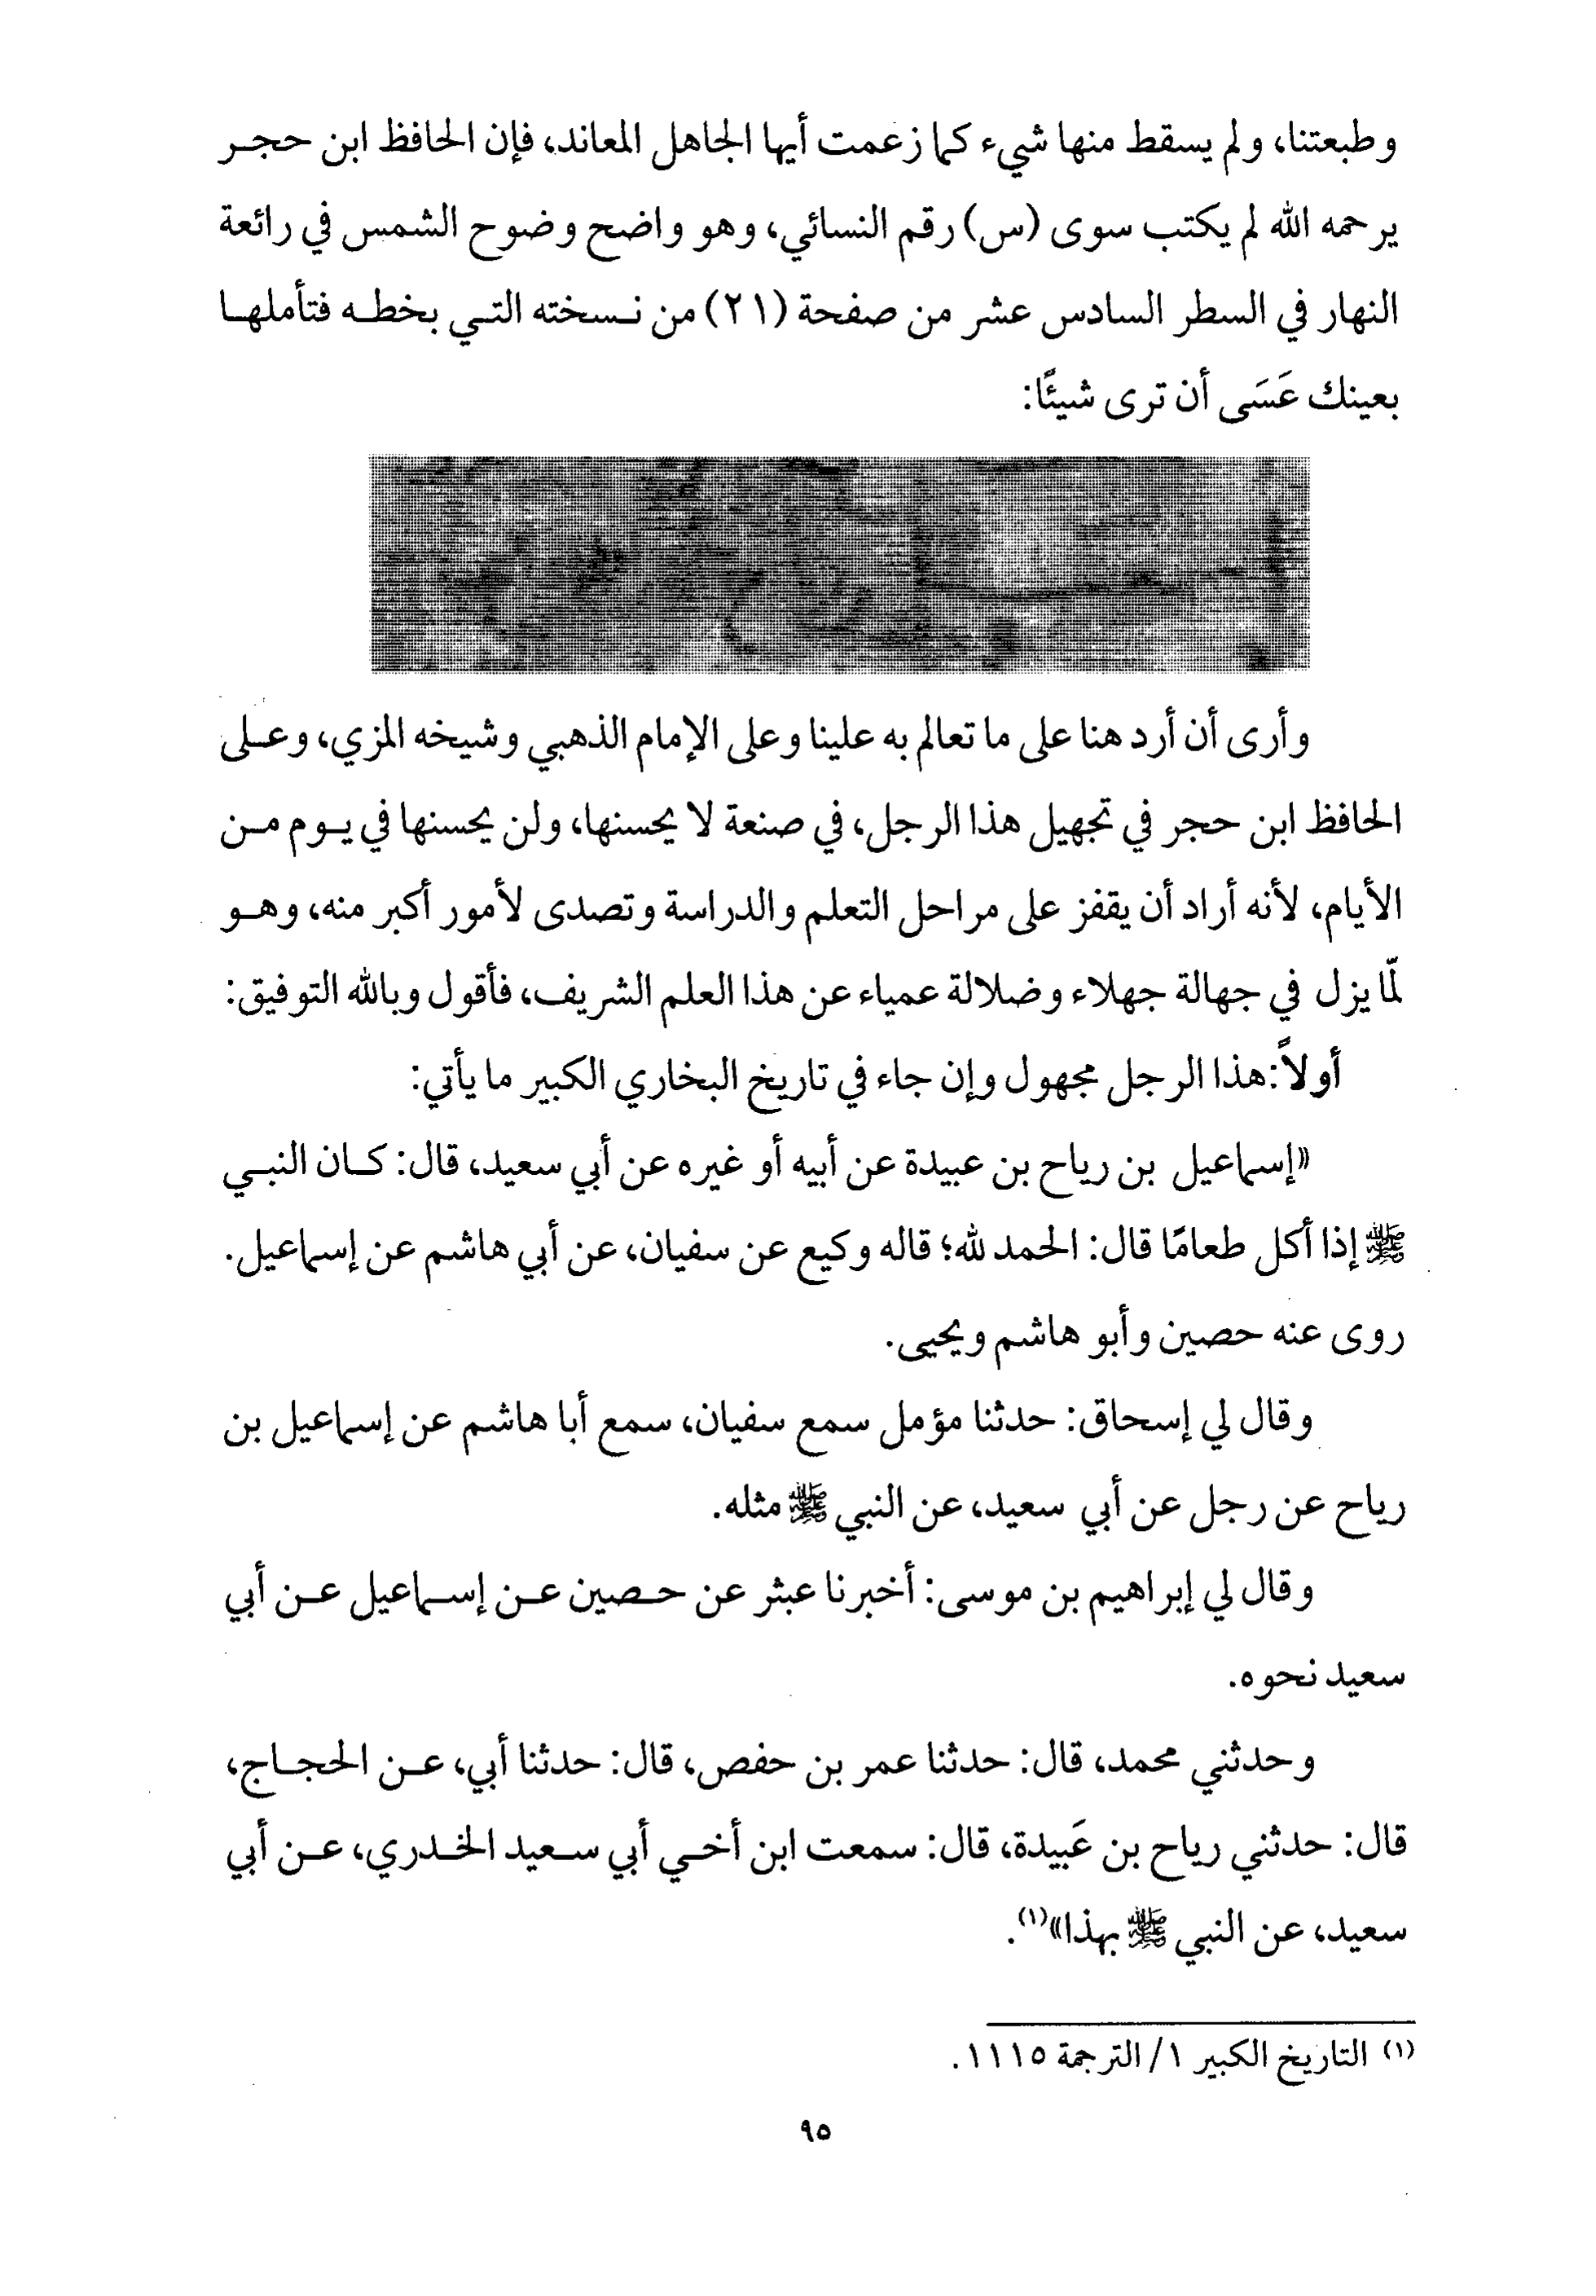 وطبعتنا، ولم يسقط منها شيء كما زعمت أيها الجاهل المعاند، فإن الحافظ ابن حجر
يرحمه الله لم يكتب سوى (س) رقم النسائي، وهو واضح وضوح الشمس في رائعة
النهار في السطر السادس عشر من صفحة (٢١) من نسخته التي بخطه فتأملها
بعينك عَسَى أن ترى شيئًا:
وأرى أن أرد هنا على ما تعالم به علينا وعلى الإمام الذهبي وشيخه المزي، وعلى
الحافظ ابن حجر في تجهيل هذا الرجل، في صنعة لا يحسنها، ولن يحسنها في يوم من
الأيام، لأنه أراد أن يقفز على مراحل التعلم والدراسة وتصدى لأمور أكبر منه، وهو
لمّا يزل في جهالة جهلاء وضلالة عمياء عن هذا العلم الشريف، فأقول وبالله التوفيق:
أولاً: هذا الرجل مجهول وإن جاء في تاريخ البخاري الكبير ما يأتي:
«إسماعيل بن رياح بن عبيدة عن أبيه أو غيره عن أبي سعيد، قال: كان النبي
ﷺ إذا أكل طعامًا قال: الحمد لله؛ قاله وكيع عن سفيان، عن أبي هاشم عن إسماعيل.
روى عنه حصين وأبو هاشم ويحيى.
وقال لي إسحاق: حدثنا مؤمل سمع سفيان، سمع أبا هاشم عن إسماعيل بن
رياح عن رجل عن أبي سعيد، عن النبي ﷺ مثله.
وقال لي إبراهيم بن موسى: أخبرنا عبثر عن حصين عن إسماعيل عن أبي
سعيد نحوه.
وحدثني محمد، قال: حدثنا عمر بن حفص، قال: حدثنا أبي، عن الحجاج،
قال: حدثني رياح بن عَبيدة، قال: سمعت ابن أخي أبي سعيد الخدري، عن أبي
سعيد، عن النبي ﷺ بهذا»(١).
(١) التاريخ الكبير ١/ الترجمة ١١١٥.
٩٥